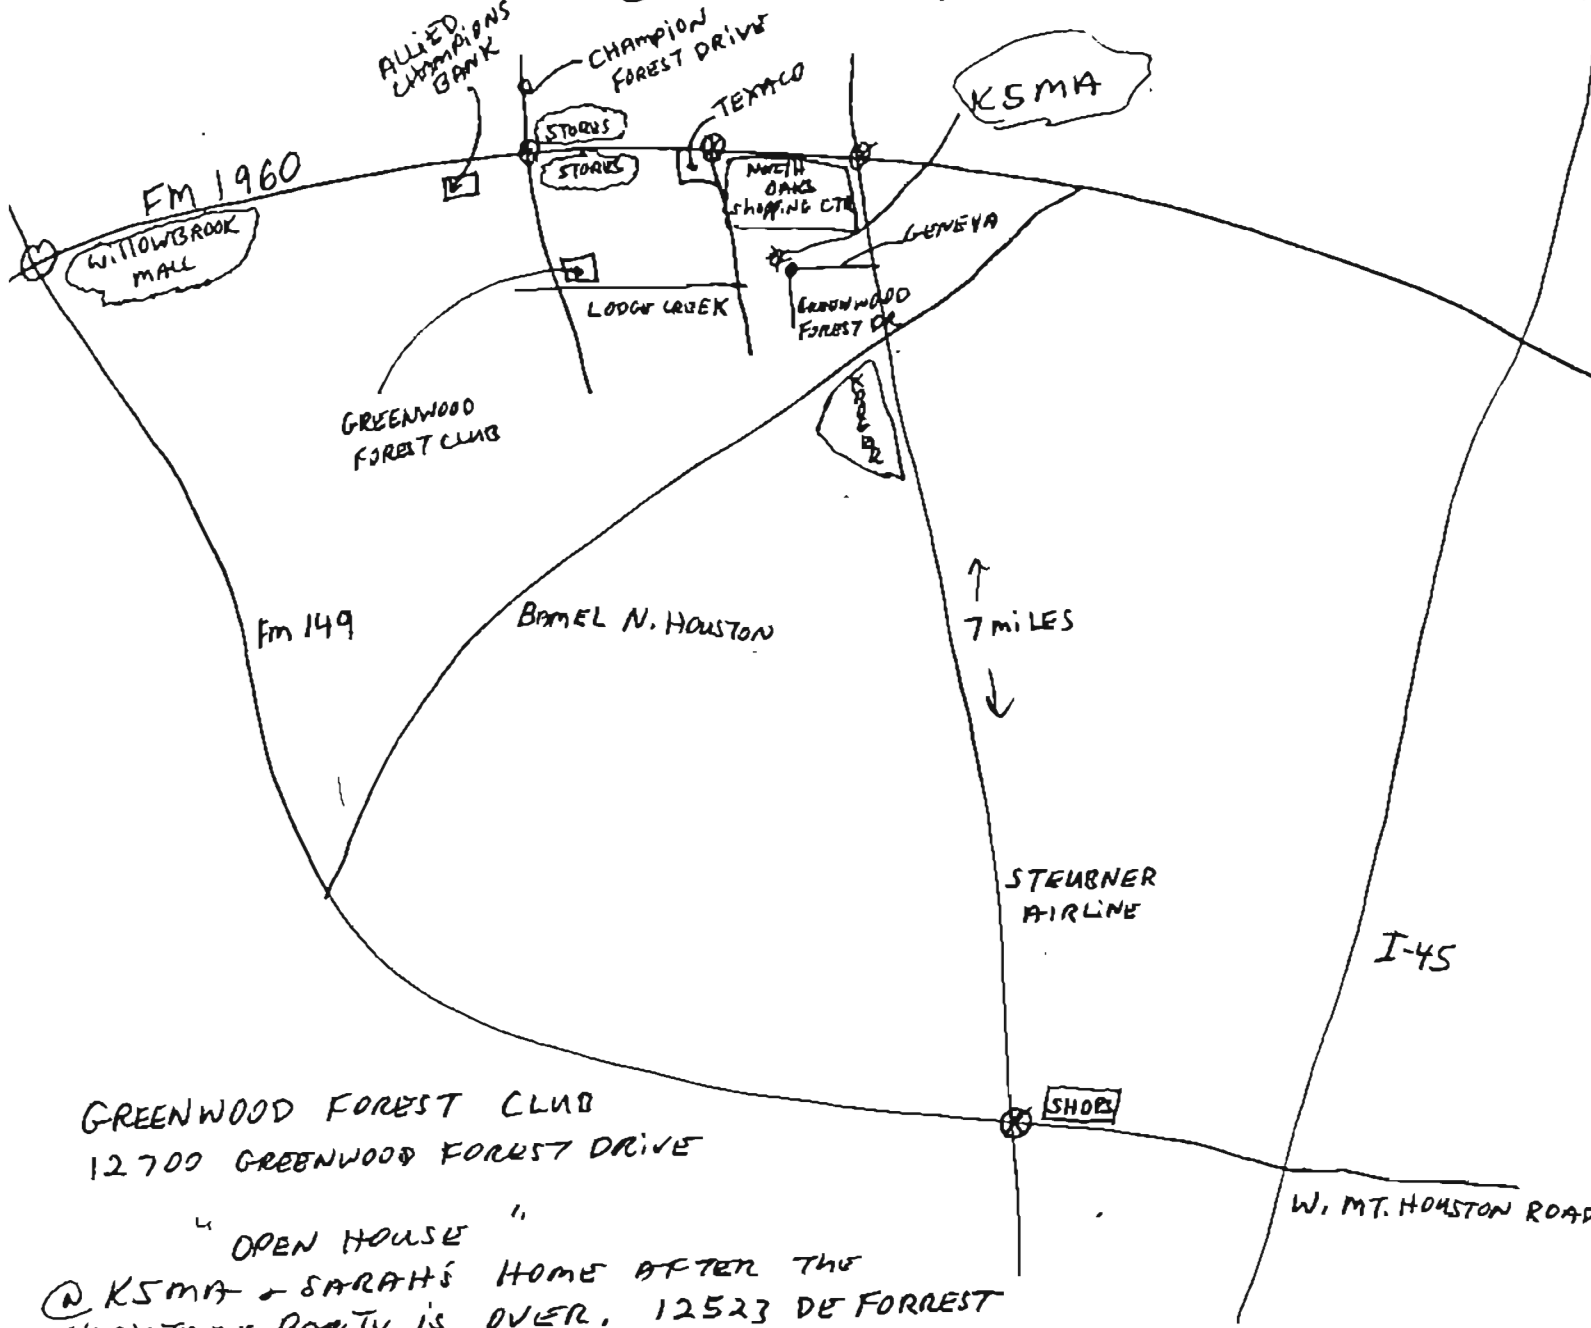 ALLIED
CHAMPIONS
BANK
CHAMPION
FOREST DRIVE
TEXACO
K5MA
STORES
STORES
NORTH
OAKS
SHOPPING CTR
FM 1960
WILLOWBROOK
MALL
GENEVA
LODGE CREEK
GREENWOOD
FOREST DR.
GREENWOOD
FOREST CLUB
KROGER
FM 149
BAMEL N. HOUSTON
7 MILES
STEUBNER
AIRLINE
I-45
SHOPS
W. MT. HOUSTON ROAD
GREENWOOD FOREST CLUB
12700 GREENWOOD FOREST DRIVE
"OPEN HOUSE"
@ K5MA & SARAH'S HOME AFTER THE
PARTY IS OVER. 12523 DE FORREST